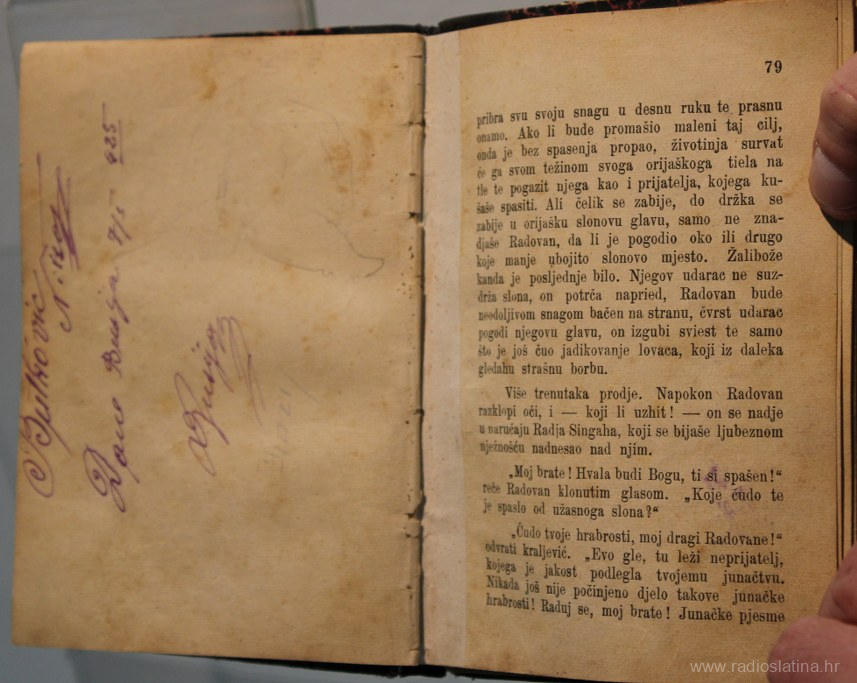 Butković
Dane Busija 8/5 925
Busija
79
pribra svu svoju snagu u desnu ruku te prasnu
onamo. Ako li bude promašio maleni taj cilj,
onda je bez spasenja propao, životinja survat
će ga svom težinom svoga orijaškoga tiela na
tle te pogazit njega kao i prijatelja, kojega ku-
šaše spasiti. Ali čelik se zabije, do držka se
zabije u orijašku slonovu glavu, samo ne zna-
djaše Radovan, da li je pogodio oko ili drugo
koje manje ubojito slonovo mjesto. Žalibože
kanda je posljednje bilo. Njegov udarac ne suz-
drža slona, on potrča napried, Radovan bude
neodoljivom snagom bačen na stranu, čvrst udarac
pogodi njegovu glavu, on izgubi sviest te samo
što je još čuo jadikovanje lovaca, koji iz daleka
gledahu strašnu borbu.
Više trenutaka prodje. Napokon Radovan
razklopi oči, i — koji li uzhit! — on se nadje
u naručaju Radja Singaha, koji se bijaše ljubeznom
nježnošću nadnesao nad njim.
„Moj brate! Hvala budi Bogu, ti si spašen!“
reče Radovan klonutim glasom. „Koje čudo te
je spaslo od užasnoga slona?“
„Čudo tvoje hrabrosti, moj dragi Radovane!“
odvrati kraljević. „Evo gle, tu leži neprijatelj,
kojega je jakost podlegla tvojemu junačtvu.
Nikada još nije počinjeno djelo takove junačke
hrabrosti! Raduj se, moj brate! Junačke pjesme
www.radioslatina.hr